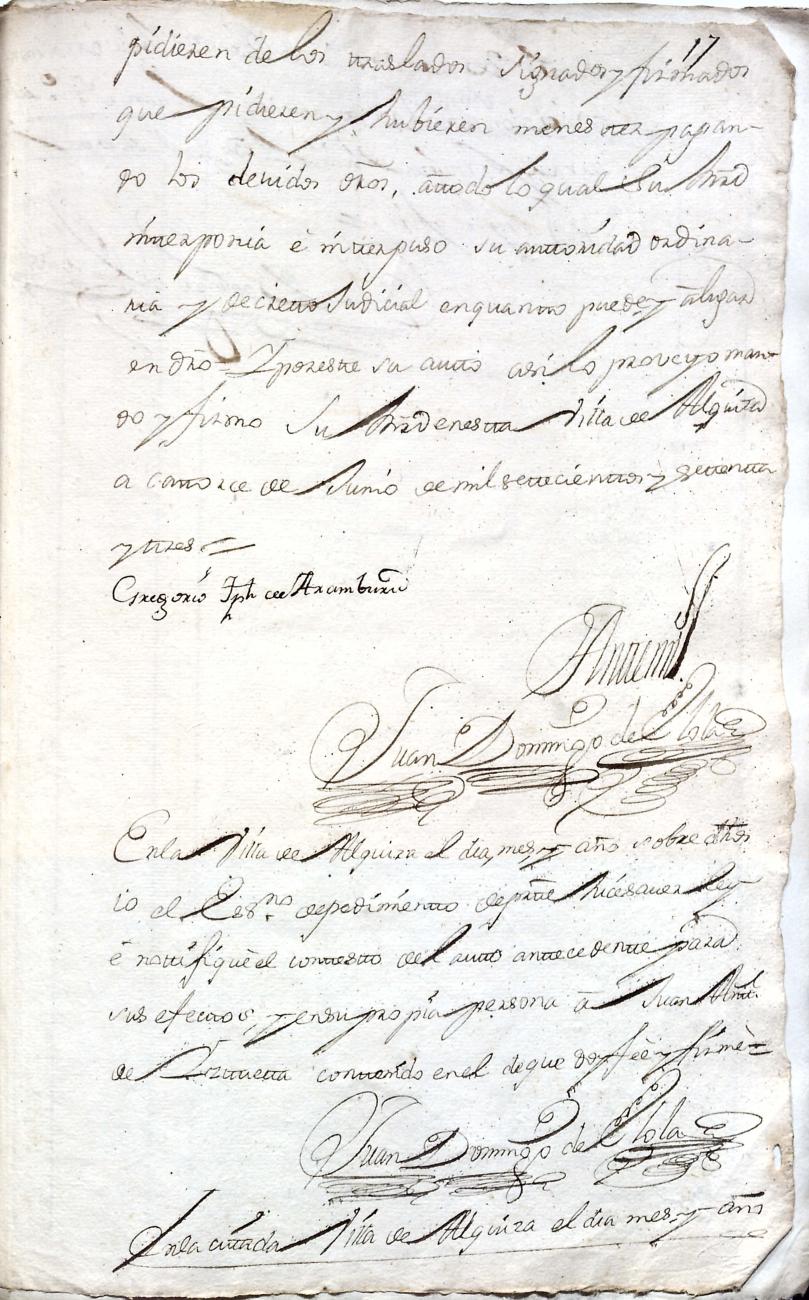 17
pidieren de los traslados signados y firmados
que pidieren y hubieren menester pagan-
do los devidos dr̃os, atodo lo qual su Mrd̃
interponia è interpuso su autoridad ordina-
ria y decretto Judicial enquanto puede y alugar
en dr̃o = Y poreste su autto asi lo proveyo man-
do y firmo su Mrd̃ en estta Villa de Alquiza
a cattorce de Junio de mil settecienttos y settentta
y ttres =
Gregorio Jph de Aramburu
Antemi
Juan Domingo de Elola
En la Villa de Alquiza el dia, mes, y año sobre dhos
io el Essno depedimentto de partte hice saver ley
è nottifiquè el contestto del autto antecedentte para
sus efecttos, y en su propia persona â Juan Antt.
de Izttuetta conttenido en el de que doy fèe y firmè =
Juan Domingo de Elola
En la cittada Villa de Alquiza el dia mes, y año